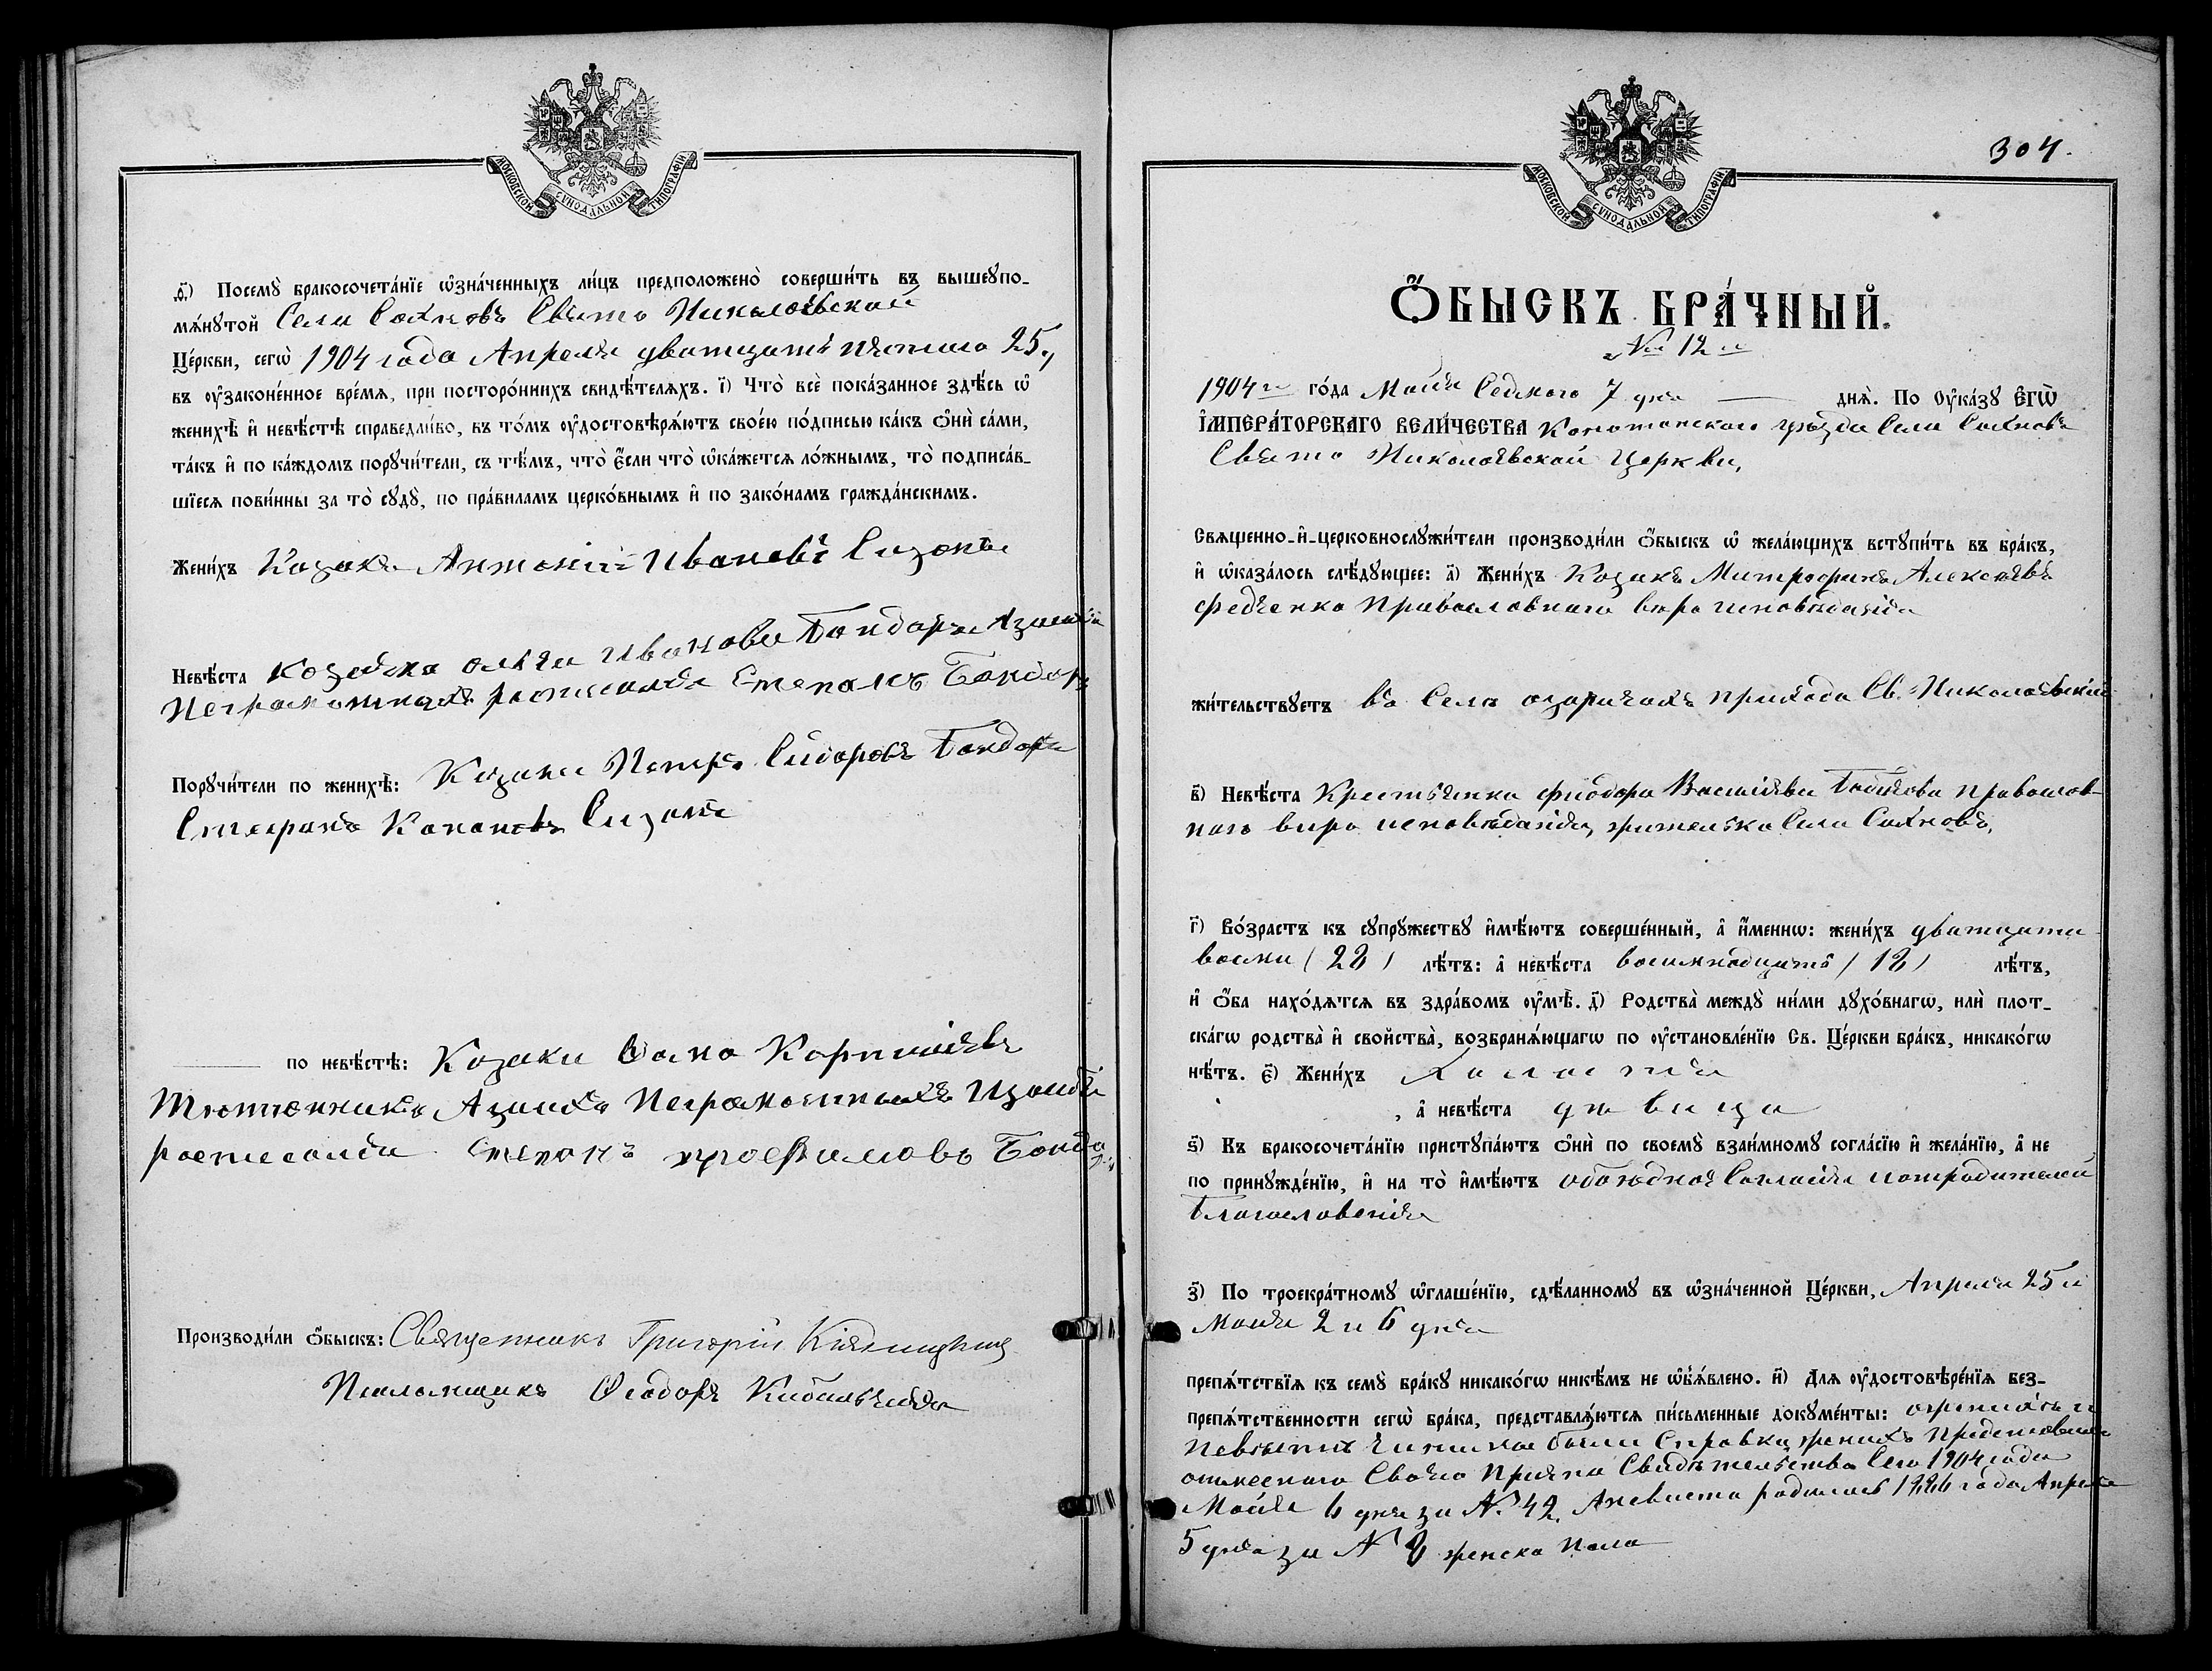 МОСКОВСКОЙ СѴНОДАЛЬНОЙ ТИПОГРАФІИ
ѳ҃) Посемꙋ̀ бракосочета́нїе ѡ҆зна́ченныхъ ли́цъ предположено̀ соверши́ть въ вышеꙋпо-
мѧ́нꙋтой Села Сахновъ Свято Николаевской
Це́ркви, сегѡ̀ 1904 года Апреля дватцать пятого 25,
въ ᲂу҆законе́нное вре́мѧ, при посторо́ннихъ свидѣ́телѧхъ. і҃) Что̀ всѐ пока́занное здѣ́сь ѡ҆
женихѣ̀ и҆ невѣ́стѣ справедли́во, въ то́мъ ᲂу҆достовѣрѧ́ютъ свое́ю по́дписью ка́къ ѻ҆нѝ са́ми,
та́къ и҆ по ка́ждомъ порꙋчи́тели, съ тѣ́мъ, что̀ є҆́сли что̀ ѡ҆ка́жетсѧ ло́жнымъ, то̀ подписа́в-
шїесѧ пови́нны за то̀ сꙋдꙋ̀, по пра́виламъ церко́внымъ и҆ по зако́намъ гражда́нскимъ.
Жени́хъ Козакъ Антоній Ивановъ Сизонъ
Невѣ́ста Козачка Ольга Иванова Бондаръ Азанея
Неграмотнаго росписался Степанъ Бондаръ
Порꙋчи́тели по женихѣ̀: Козаки Петръ Сидоровъ Бондаръ
Стефанъ Сизонъ
по невѣ́стѣ: Козаки
Азаихъ Неграмотныхъ
росписался Степанъ Трофимовъ Бондаръ
Производи́ли ѻ҆́быскъ: Священникъ Григорій
Псаломщикъ Ѳеодоръ
304.
МОСКОВСКОЙ СѴНОДАЛЬНОЙ ТИПОГРАФІИ
Ѻ҆́БЫСКЪ БРА́ЧНЫЙ.
№ 12й
1904го го́да Маія Седмого 7 дня — днѧ̀. По ᲂу҆ка́зꙋ Є҆ГѠ̀
І҆МПЕРА́ТОРСКАГО ВЕЛИ́ЧЕСТВА Конотопского уѣзда Села Сахновъ
Свято Николаевской церкви,
Свѧщенно-и҆-церковнослꙋжи́тели производи́ли ѻ҆́быскъ ѡ҆ жела́ющихъ встꙋпи́ть въ бра́къ,
и҆ ѡ҆каза́лось слѣ́дꙋющее: а҃) Жени́хъ Козакъ Митрофанъ Алексѣевъ
Федченко Православного веро исповѣданія
жи́тельствꙋетъ въ Селѣ озаричахъ прихода Св. Николаевской
в҃) Невѣ́ста Крестьянка Федора Василіева Православ-
ного виро исповѣданія, жителька Села Сахновъ,
г҃) Во́зрастъ къ сꙋпрꙋ́жествꙋ и҆мѣ́ютъ соверше́нный, а҆ и҆́меннѡ: жени́хъ дватцати
восми (28) лѣ́тъ: а҆ невѣ́ста восимнадцать (18) лѣ́тъ,
и҆ ѻ҆́ба нахо́дѧтсѧ въ здра́вомъ ᲂу҆мѣ̀. д҃) Родства̀ междꙋ̀ ни́ми дꙋхо́внагѡ, илѝ плот-
ска́гѡ родства̀ и҆ свойства̀, возбранѧ́ющагѡ по ᲂу҆становле́нїю Св. Це́ркви бра́къ, никако́гѡ
нѣ́тъ. є҃) Жени́хъ Холостій
, а҆ невѣ́ста дѣвица
ѕ҃) Къ бракосочета́нїю пристꙋпа́ютъ ѻ҆нѝ по своемꙋ̀ взаи́мномꙋ согла́сїю и҆ жела́нїю, а҆ не
по принꙋжде́нїю, и҆ на то̀ и҆мѣ́ютъ обоюдное Согласія ы отродителей
Благословенія
з҃) По троекра́тномꙋ ѡ҆глаше́нїю, сдѣ́ланномꙋ въ ѡ҆зна́ченной Це́ркви, Апреля 25 и
Маія 2 и 6 дня
препѧ́тствїѧ къ семꙋ̀ бра́кꙋ никако́гѡ никѣ́мъ не ѡ҆б̾ѧ́влено. и҃) Длѧ ᲂу҆достовѣре́нїѧ без-
препѧ́тственности сегѡ̀ бра́ка, представлѧ́ютсѧ пи́сьменные докꙋме́нты: ожениху и
Невѣсти были Справки жених предоставилъ
Своего Свидѣтельства Сего 1904 года
Маія 6 дня за № 42, Аневиста родилась 1886 года Апреля
5 дня за № 8 женско пола